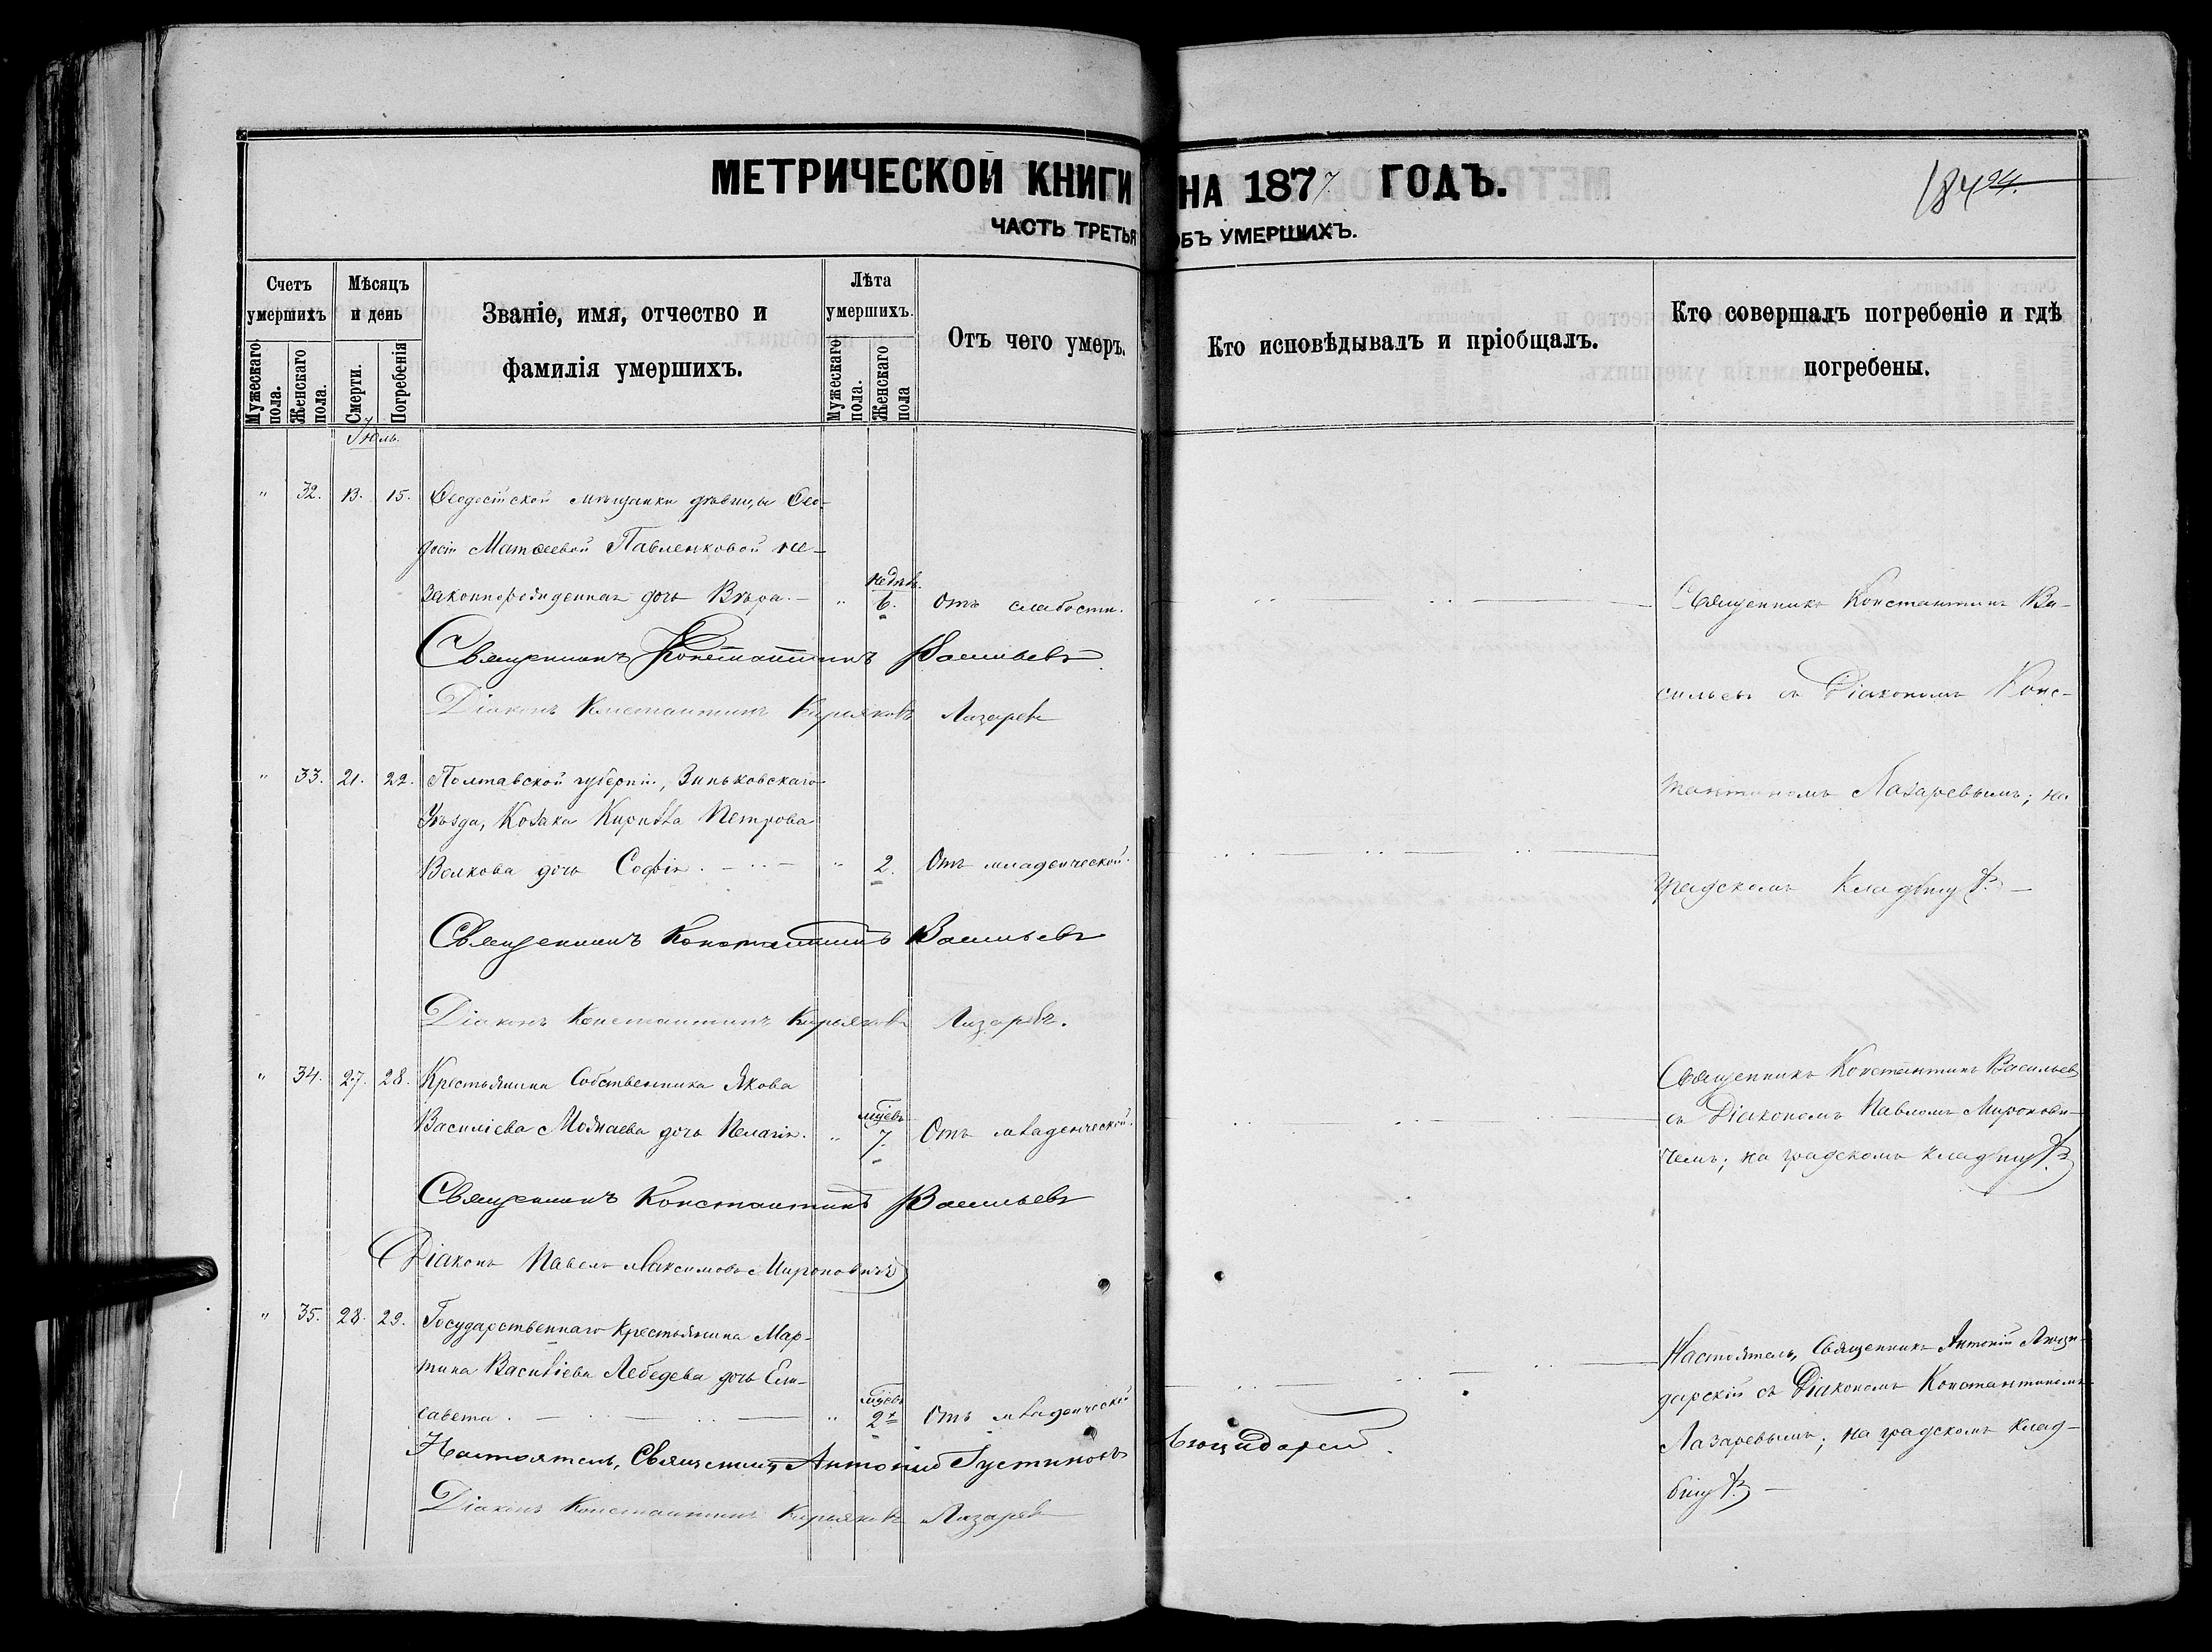 МЕТРИЧЕСКОЙ КНИГИ НА 1877 ГОДЪ.
ЧАСТЬ ТРЕТЬЯ ОБЪ УМЕРШИХЪ.
Счетъ умершихъ
Мужескаго пола.
Женскаго пола.
Мѣсяцъ и день
Смерти.
Погребенія
Званіе, имя, отчество и
фамилія умершихъ.
Лѣта умершихъ.
Мужескаго пола.
Женскаго пола
Отъ чего умеръ.
Кто исповѣдывалъ и пріобщалъ.
Кто совершалъ погребеніе и гдѣ
погребены.
Іюль.
" 32. 13. 15. Ѳеодосійской мѣщанки дѣвицы Ѳео-
досіи Матѳеевой Павленковой не-
законнорожденная дочь Вѣра. " недѣль 6. Отъ слабости.
Священникъ Константинъ Ва-
сильевъ съ Діакономъ Конс-
тантиномъ Лазаревымъ; на
градскомъ кладбищѣ
Священникъ Константинъ Васильевъ
Діаконъ Константинъ Кирьяковъ Лазаревъ
" 33. 21. 22. Полтавской губерніи, Зиньковскаго
Уѣзда, Козака Кирилла Петрова
Волкова дочь Софія. " 2. Отъ младенческой.
Священникъ Константинъ Васильевъ
Діаконъ Константинъ Кирьяковъ Лазаревъ.
" 34. 27. 28. Крестьянина Собственника Якова
Василіева дочь Пелагія. " мцевъ 7. Отъ младенческой.
Священникъ Константинъ Васильевъ
съ Діакономъ Павломъ Миронови-
чемъ; на градскомъ кладбищѣ
Священникъ Константинъ Васильевъ
Діаконъ Павелъ Максимовъ Мироновичъ
" 35. 28. 29. Государственнаго Крестьянина Мар-
тина Василіева Лебедева дочь Ели-
савета. " мцевъ 2 Отъ младенческой
Настоятель, Священникъ Антоній Люци-
дарскій съ Діакономъ Константиномъ
Лазаревымъ; на градскомъ клад-
бищѣ
Настоятель, Священникъ Антоній Іустиновъ Люцидарскій.
Діаконъ Константинъ Кирьяковъ Лазаревъ